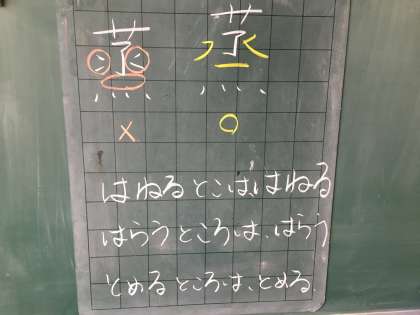 蒸 蒸
× ○
はねるとこは、はねる
はらうところは、はらう
とめるところは、とめる。